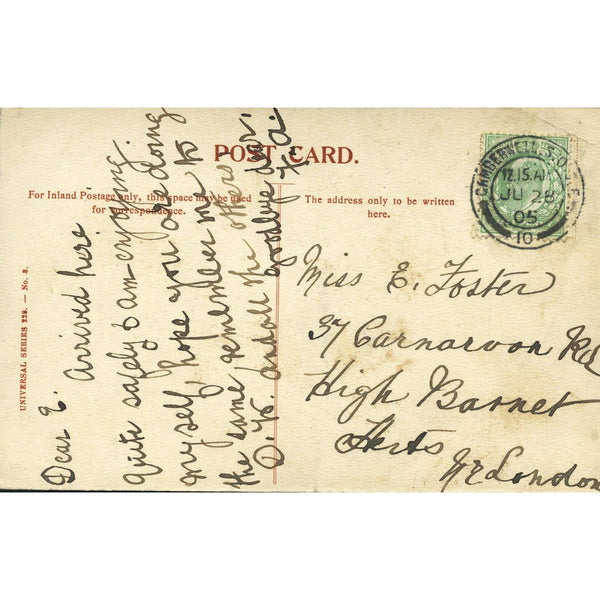 POST CARD.
For Inland Postage only, this space may be used
for correspondence.
The address only to be written
here.
UNIVERSAL SERIES 228. — No. 3.
CAMBERWELL S.O.
12.15 AM
JU 28
05
10
Dear E. Arrived here
quite safely & am enjoying
myself, hope you are doing
the same remember me to
and all the others
Goodbye dear.
Miss E. Foster
37 Carnarvon Rd
High Barnet
Herts
Nr London